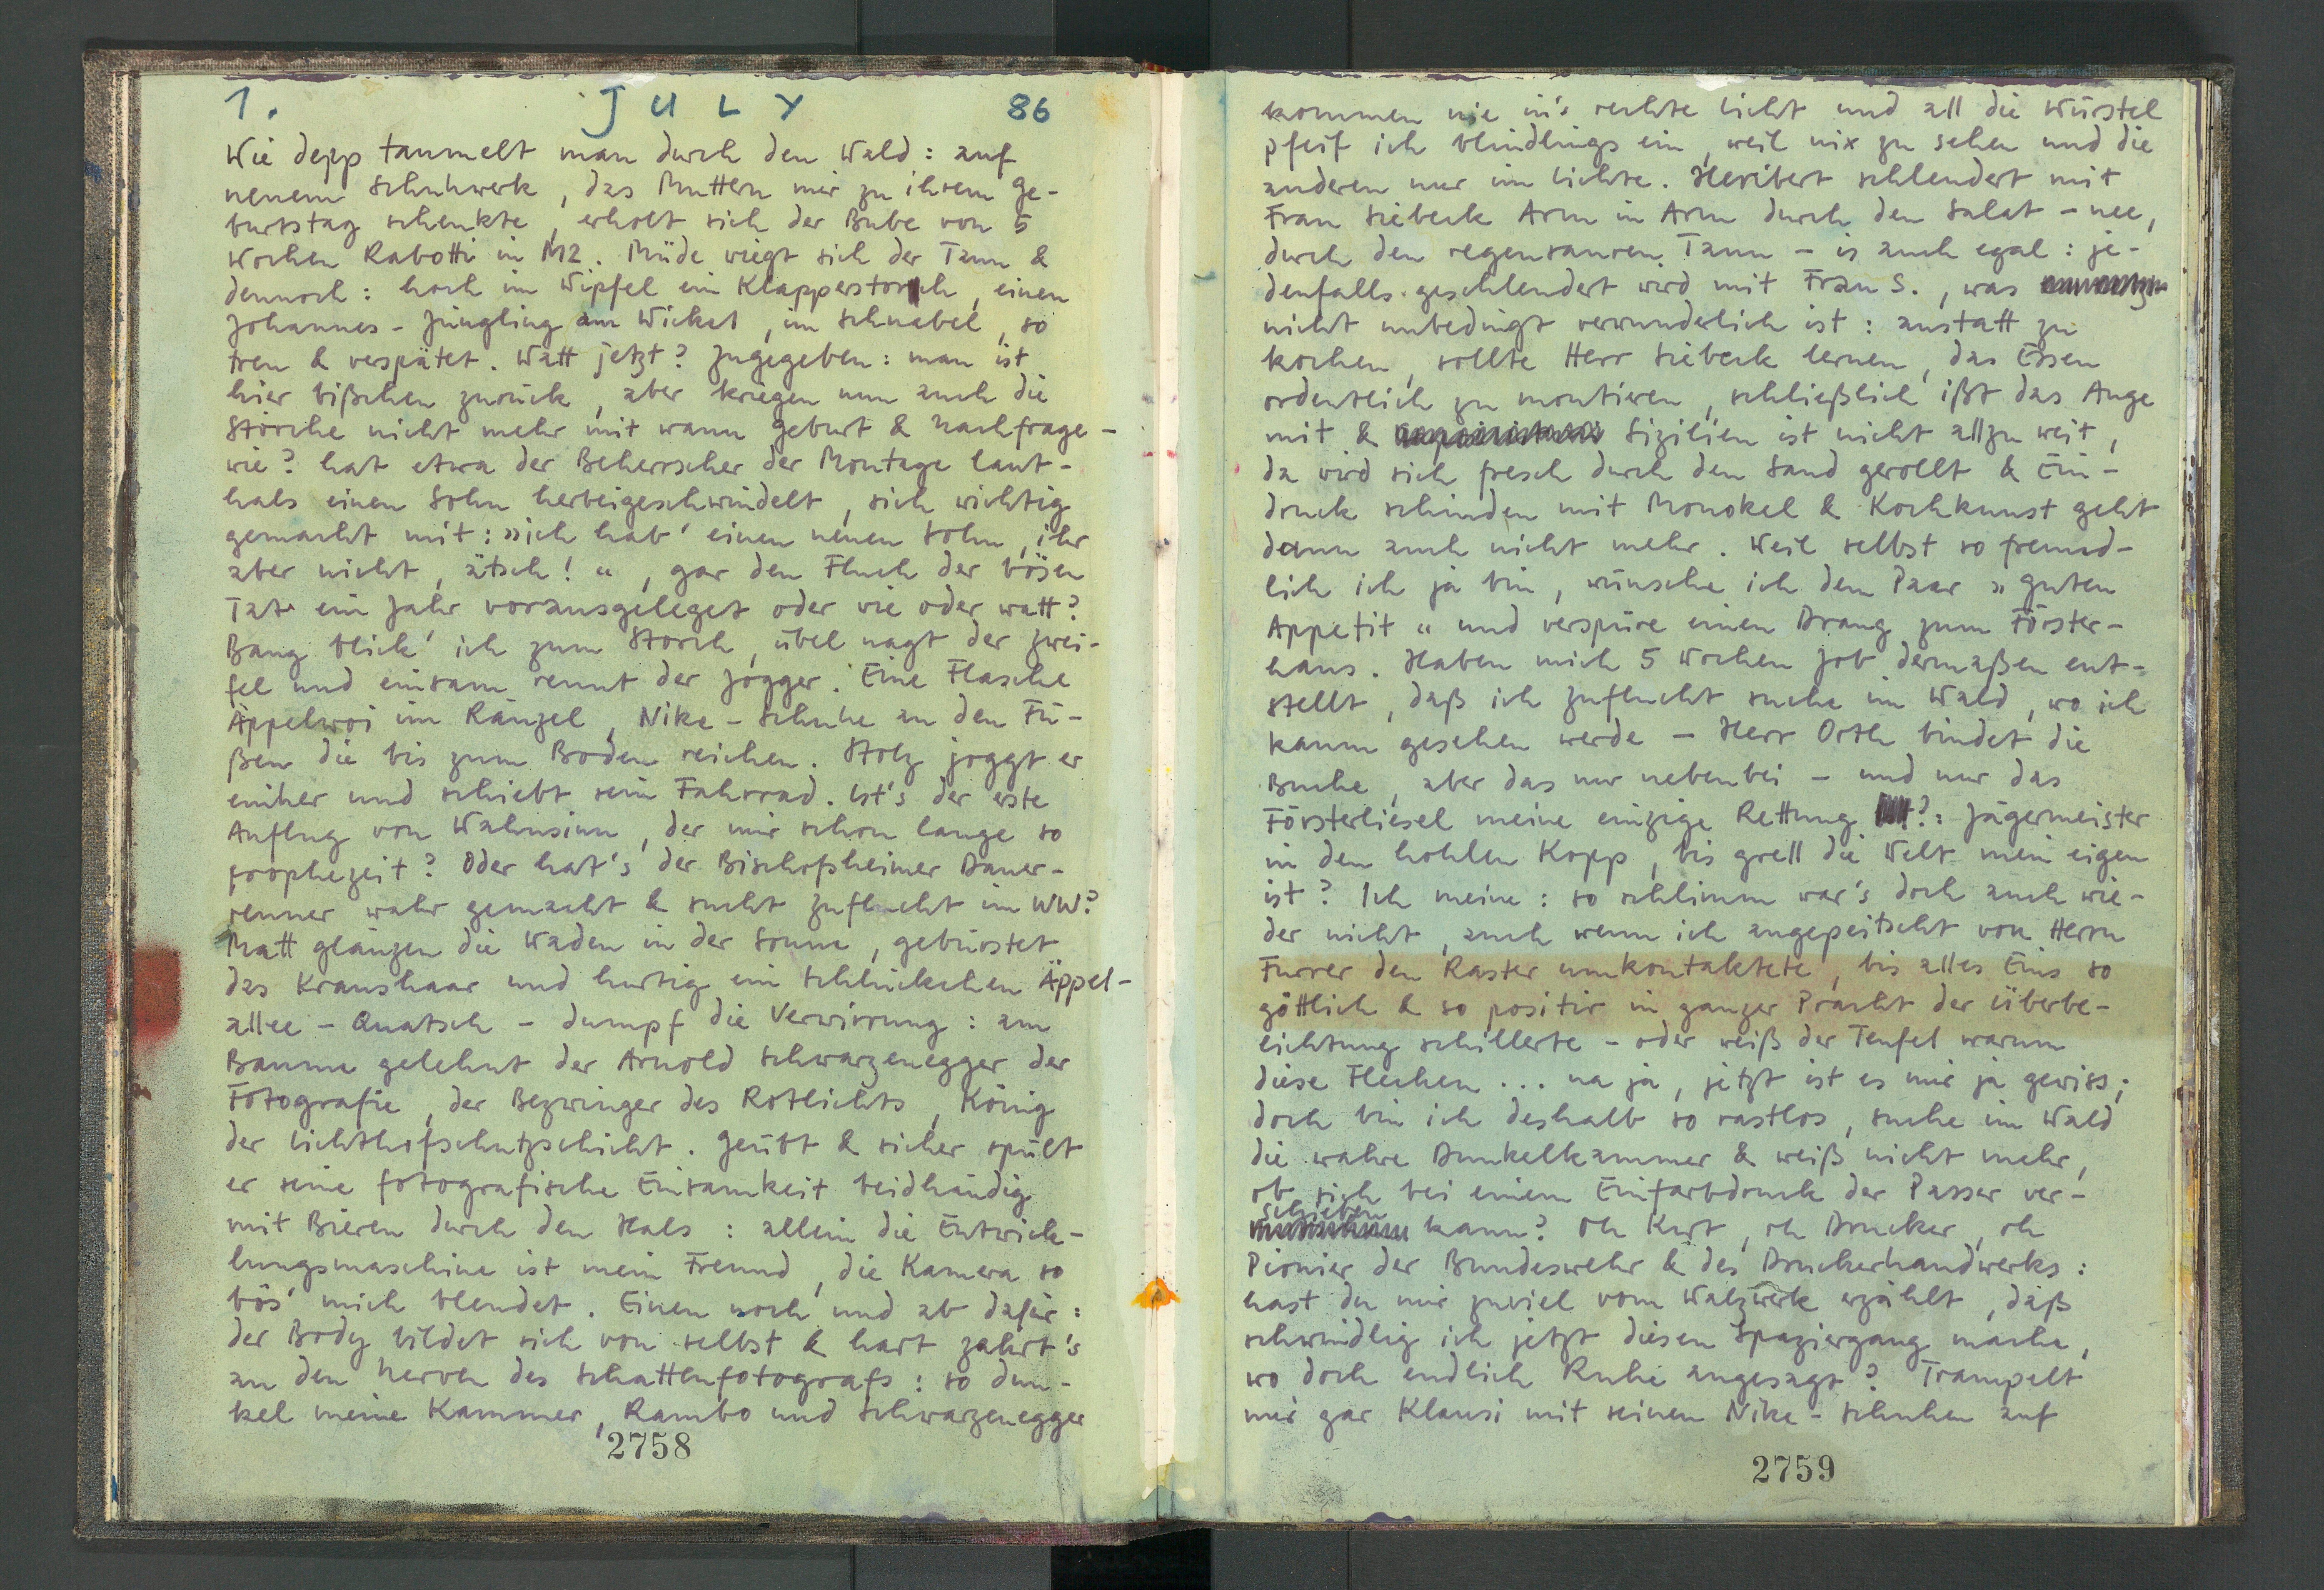 1. JULY 86
Wie depp taumelt man durch den Wald: auf
neuem Schuhwerk, das Muttern mir zu ihrem Ge-
burtstag schenkte, erholt sich der Bube von 5
Wochen Rabotti in MZ. Müde wiegt sich der Tann &
dennoch: hoch im Wipfel ein Klapperstorch, einen
Johannes-Jüngling am Wickel, im Schnabel, so
treu & verspätet. Watt jetzt? Zugegeben: man ist
hier bißchen zurück, aber kriegen nun auch die
Störche nicht mehr mit wann Geburt & Nachfrage -
wie? hat etwa der Beherrscher der Montage laut-
hals einen Sohn herbeigeschwindelt, sich wichtig
gemacht mit: »ich hab' einen neuen Sohn, ihr
aber nicht, ätsch!«, gar den Fluch der bösen
Tat ein Jahr vorausgeleget oder wie oder watt?
Bang blick' ich zum Storch, übel nagt der Zwei-
fel und einsam rennt der Jogger. Eine Flasche
Äppelwoi im Ränzel, Nike-Schuhe an den Fü-
ßen die bis zum Boden reichen. Stolz joggt er
einher und schiebt sein Fahrrad. Ist's der erste
Anflug von Wahnsinn, der mir schon lange so
prophezeit? Oder hat's der Bischofsheimer Dauer-
renner wahr gemacht & sucht Zuflucht im WW?
Matt glänzen die Waden in der Sonne, gebürstet
das Kraushaar und hurtig ein Schlückchen Äppel-
allee - Quatsch - dumpf die Verwirrung: am
Baume gelehnt der Arnold Schwarzenegger der
Fotografie, der Bezwinger des Rotlichts, König
der Lichthofschutzschicht. Geübt & sicher spült
er seine fotografische Einsamkeit beidhändig
mit Bieren durch den Hals: allein die Entwick-
lungsmaschine ist mein Freund, die Kamera so
bös' mich blendet. Einen noch und ab dafür:
der Body bildet sich von selbst & hart zahrt's
an den Nerven des Schattenfotografs: so dun-
kel meine Kammer, Rambo und Schwarzenegger
2758
kommen nie in's rechte Licht und all die Würstel
pfeif ich blindlings ein, weil nix zu sehen und die
anderen nur im Lichte. Heribert schlendert mit
Frau Siebeck Arm in Arm durch den Salat - nee,
durch den regensauren Tann - is auch egal: je-
denfalls geschlendert wird mit Frau S., was
nicht unbedingt verwunderlich ist: anstatt zu
kochen, sollte Herr Siebeck lernen, das Essen
ordentlich zu montieren, schließlich ißt das Auge
mit & Sizilien ist nicht allzu weit,
da wird sich fresch durch den Sand gerollt & Ein-
druck schinden mit Monokel & Kochkunst geht
dann auch nicht mehr. Weil selbst so freund-
lich ich ja bin, wünsche ich dem Paar »Guten
Appetit« und verspüre einen Drang zum Förster-
haus. Haben mich 5 Wochen Job dermaßen ent-
stellt, daß ich Zuflucht suche im Wald, wo ich
kaum gesehen werde - Herr Orth bindet die
Buche, aber das nur nebenbei - und nur das
Försterliesel meine einzige Rettung ?: Jägermeister
in den hohlen Kopp, bis grell die Welt mein eigen
ist? Ich meine: so schlimm war's doch auch wie-
der nicht, auch wenn ich angepeitscht von Herrn
Furrer den Raster umkontaktete, bis alles Eins so
göttlich & so positiv in ganzer Pracht der Überbe-
lichtung schillerte - oder weiß der Teufel warum
diese Flecken... na ja, jetzt ist es mir ja gewiss;
doch bin ich deshalb so rastlos, suche im Wald
die wahre Dunkelkammer & weiß nicht mehr,
ob sich bei einem Einfarbdruck der Passer ver-
schieben kann? Oh Kurt, oh Drucker, oh
Pionier der Bundeswehr & des Druckerhandwerks:
hast du mir zuviel vom Walzwerk erzählt, daß
schwindlig ich jetzt diesen Spaziergang mache,
wo doch endlich Ruhe angesagt? Trampelt
mir gar Klausi mit seinen Nike-Schuhen auf
2759